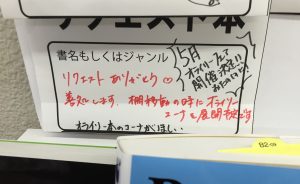 リクエスト本
書名もしくはジャンル
5月
オライリーフェア
開催決定!!
リクエスト ありがとう♡
善処します。棚移動の時にオライリー
コーナーを展開予定です
オライリー本のコーナがほしい…